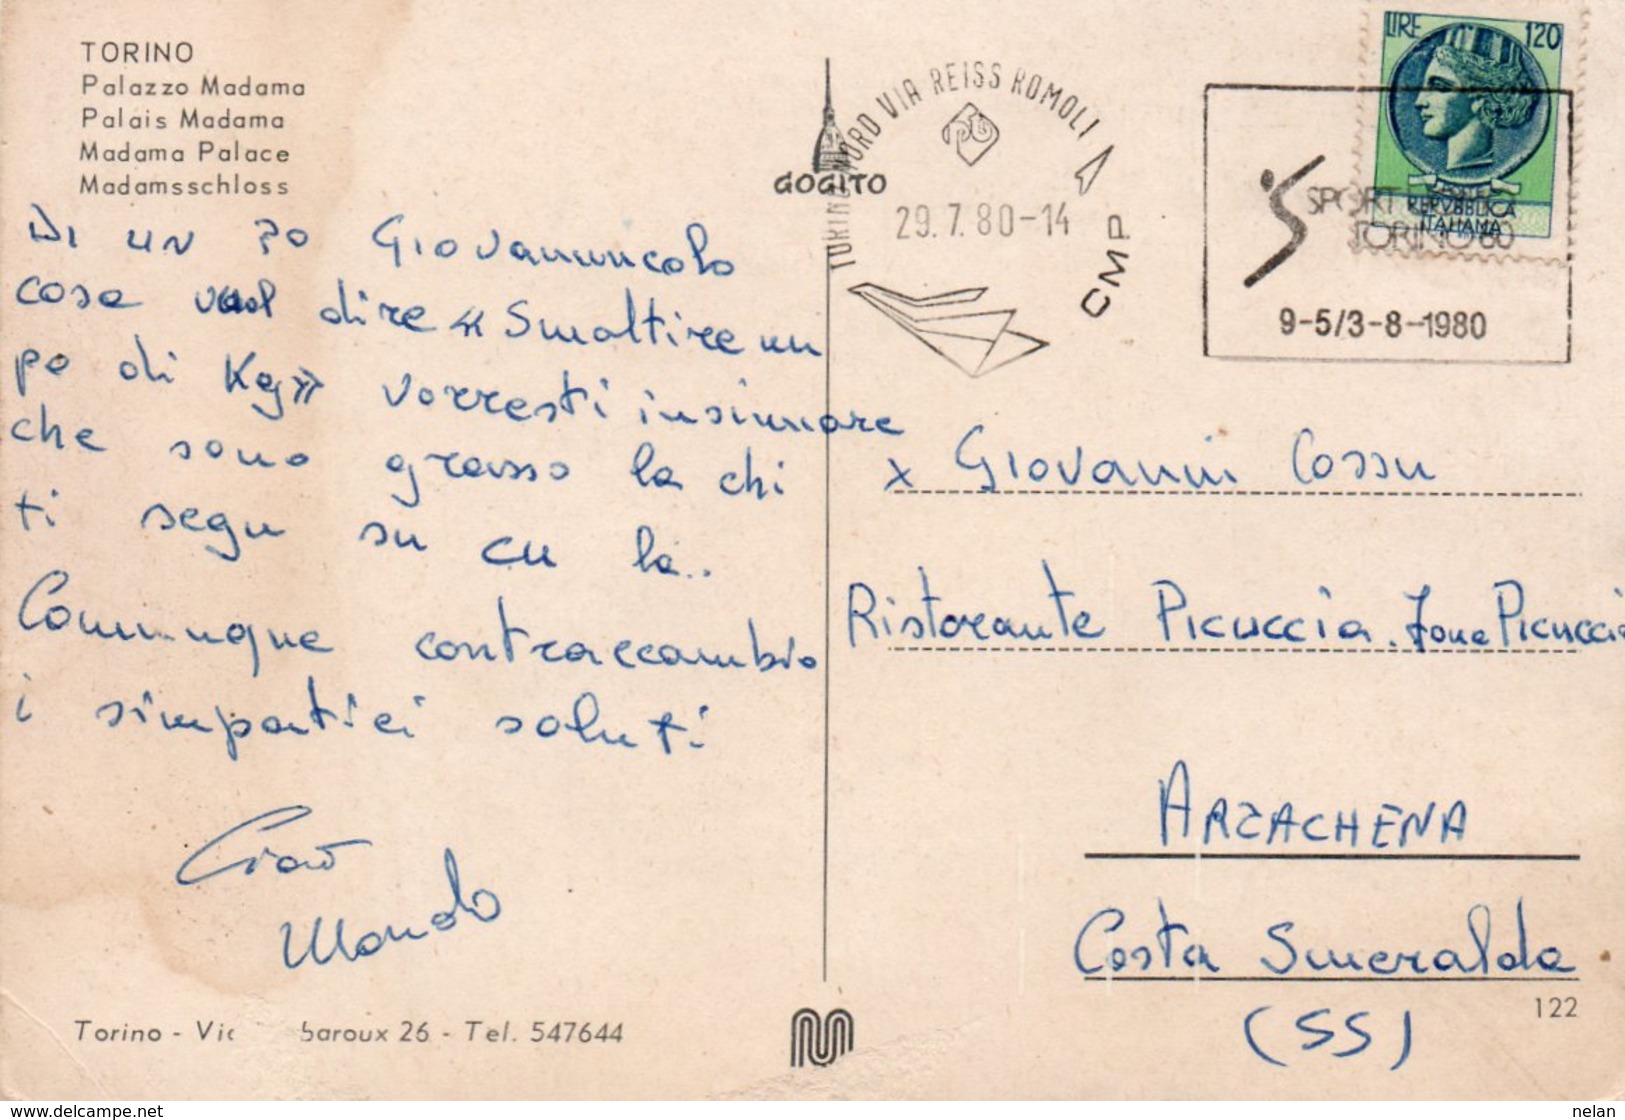 TORINO
Palazzo Madama
Palais Madama
Madama Palace
Madamsschloss
Di un po Giovannuccolo
cosa vuol dire « Smaltire un
po di Kg» vorresti insinuare
che sono grasso la chi
ti segu su cu la..
Comunque contraccambio
i simpatici saluti
Ciao
Mondo
Torino - Vi baroux 26 - Tel. 547644
GOGITO
TORINO NORD VIA REISS ROMOLI
CMP
29.7.80-14
LIRE 120
REPVBBLICA
ITALIANA
SPORT
TORINO 80
9-5/3-8-1980
x Giovanni Cossu
Ristorante Picuccia. Zona Picuccia
ARZACHENA
Costa Smeralda
(SS)
122
www.delcampe.net
nelan